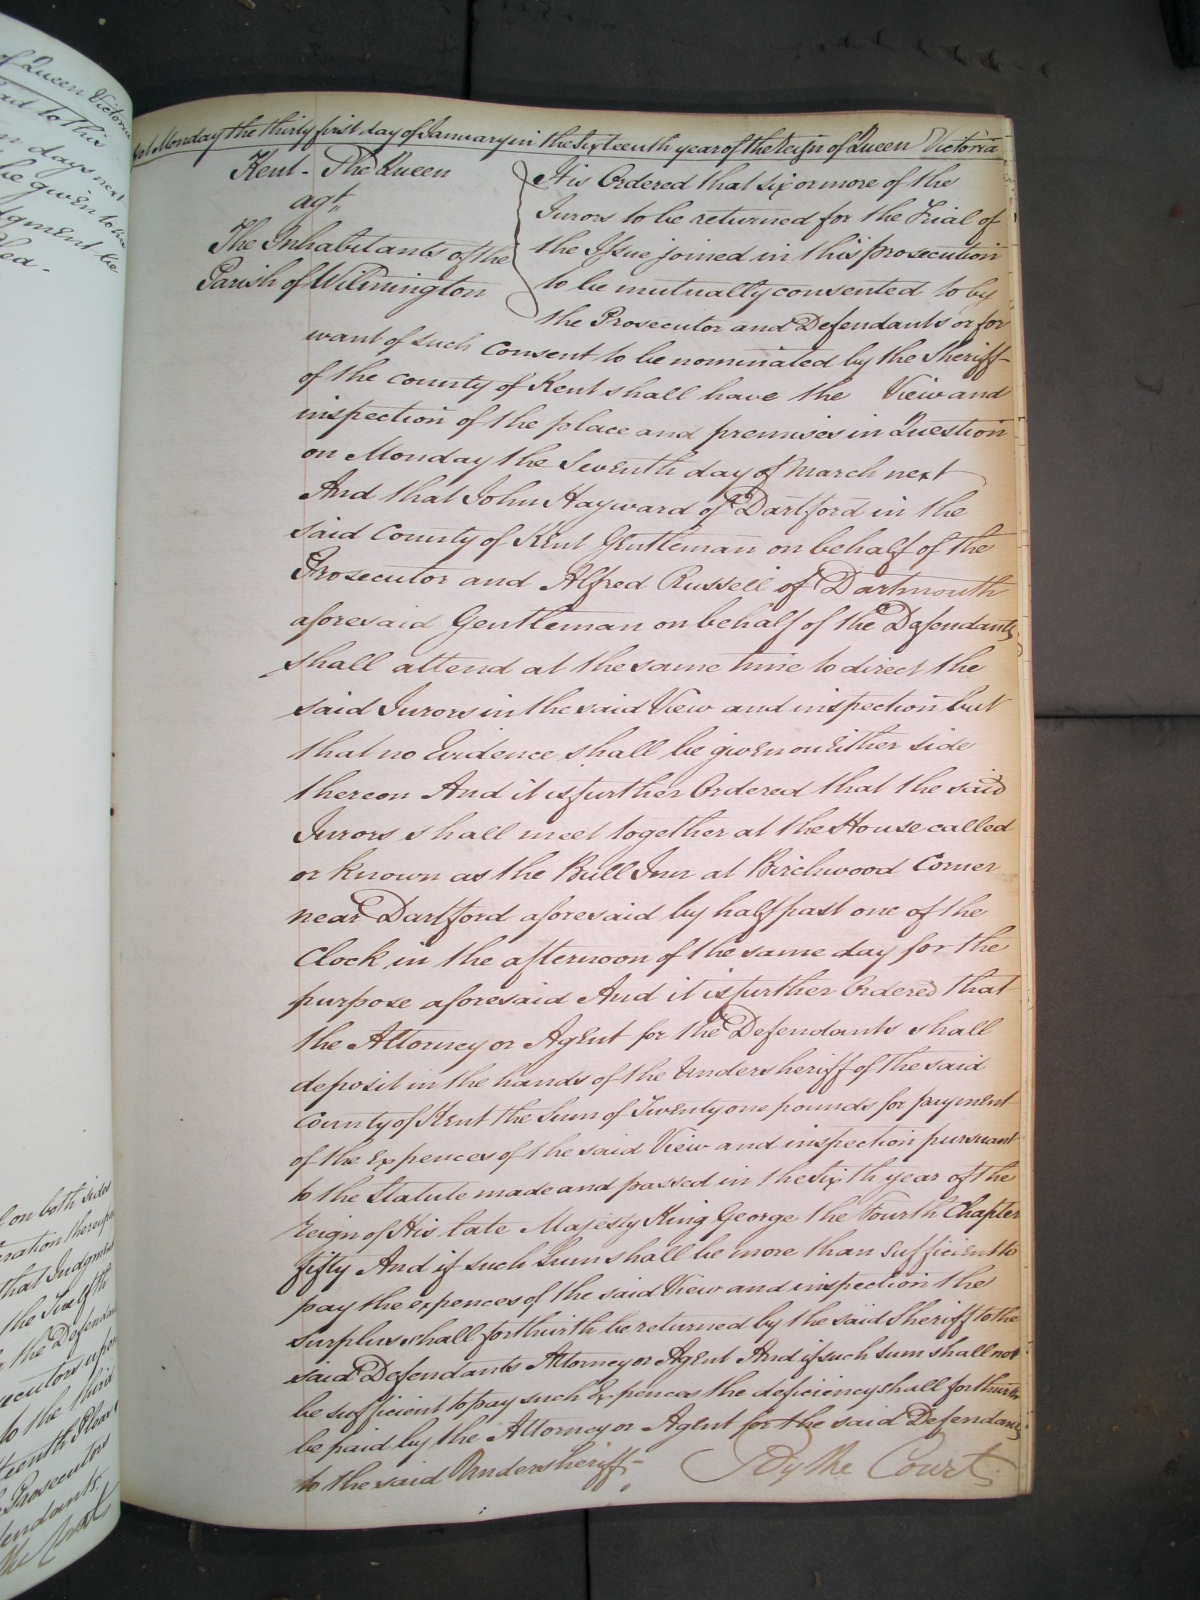 of Queen Victoria
days next
be given to
Judgment be
on Monday the thirty first day of January in the sixteenth year of the Reign of Queen Victoria
Kent - The Queen
agt.
The Inhabitants of the
Parish of Wilmington
It is Ordered that six or more of the
Jurors to be returned for the Trial of
the Issue joined in this prosecution
to be mutually consented to by
the Prosecutor and Defendants or for
want of such consent to be nominated by the Sheriff
of the county of Kent shall have the View and
inspection of the place and premises in Question
on Monday the Seventh day of March next
And that John Hayward of Dartford in the
said County of Kent Gentleman on behalf of the
Prosecutor and Alfred Russell of Dartmouth
aforesaid Gentleman on behalf of the Defendants
shall attend at the same time to direct the
said Jurors in the said View and inspection but
that no Evidence shall be given on Either side
thereon And it is further Ordered that the said
Jurors shall meet together at the House called
or known as the Bull Inn at Birchwood Corner
near Dartford aforesaid by half past one of the
Clock in the afternoon of the same day for the
purpose aforesaid And it is further Ordered that
the Attorney or Agent for the Defendants shall
deposit in the hands of the Undersheriff of the said
County of Kent the Sum of Twenty one pounds for payment
of the Expences of the said View and inspection pursuant
to the Statute made and passed in the sixth year of the
reign of His late Majesty King George the Fourth Chapter
fifty And if such Sum shall be more than sufficient to
pay the expences of the said View and inspection the
surplus shall forthwith be returned by the said Sheriff to the
said Defendants Attorney or Agent And if such sum shall not
be sufficient to pay such Expences the deficiency shall forthwith
be paid by the Attorney or Agent for the said Defendants
to the said Undersheriff -
By the Court
on both sides
that Judgment
the Twelfth
the Defendants
to the third
Prosecutors